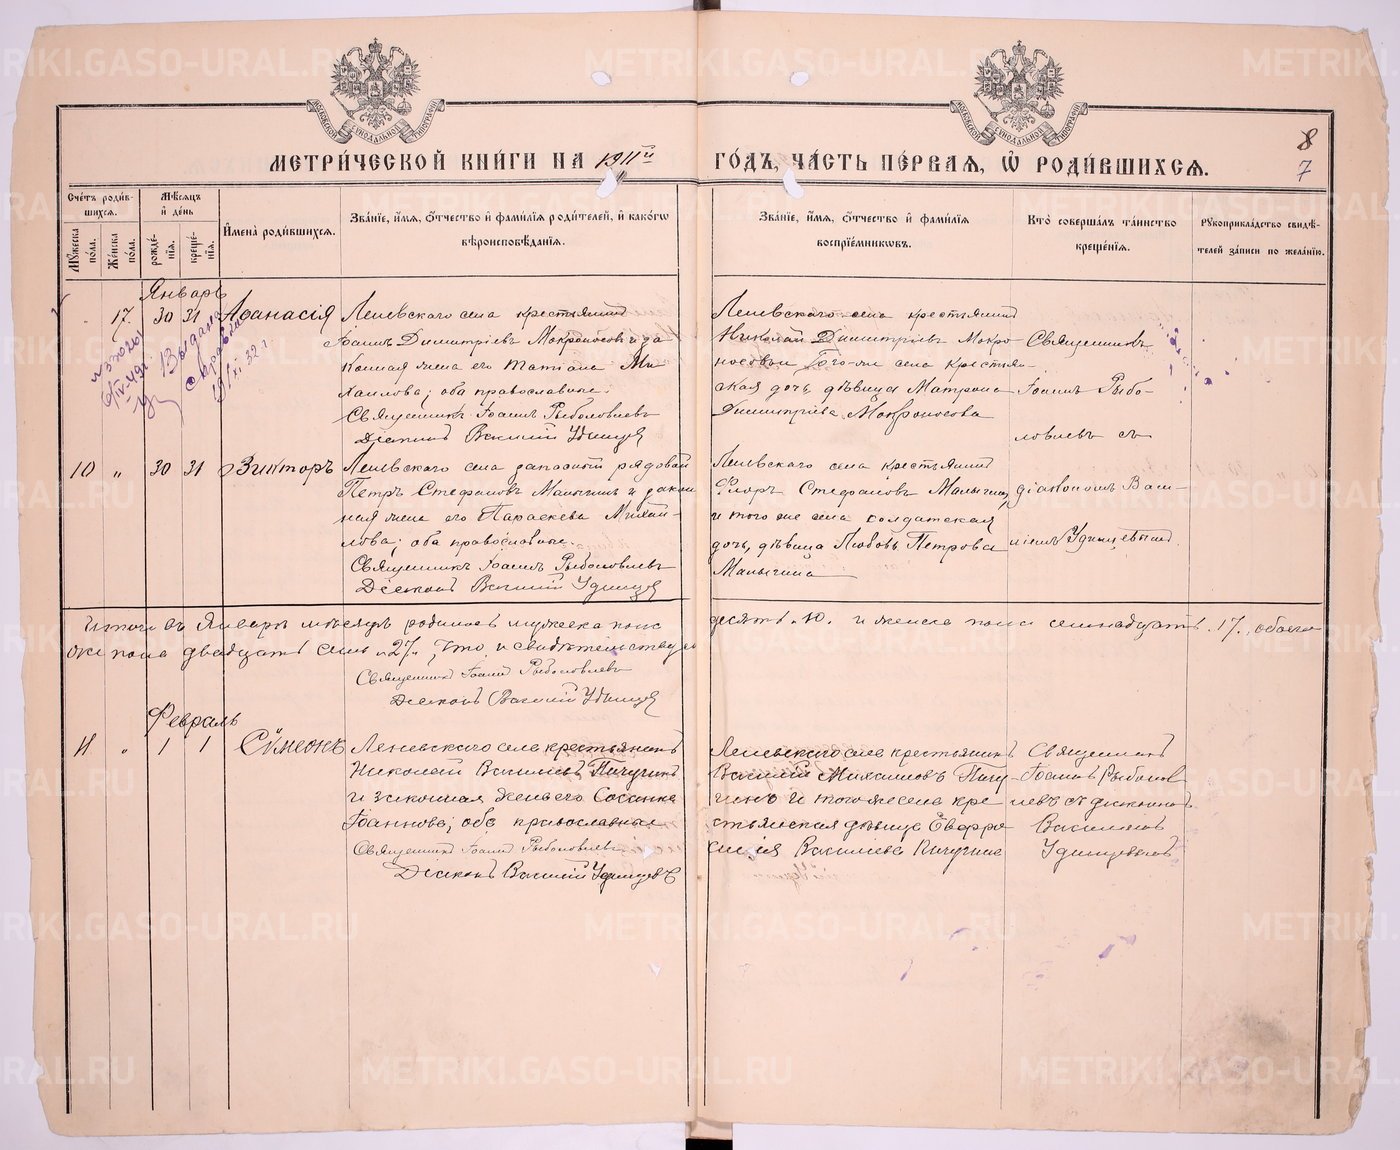 МЕТРИ́ЧЕСКОЙ КНИ́ГИ НА 1911й ГО́ДЪ, ЧА́СТЬ ПЕ́РВАЯ, Ѿ РОДИ́ВШИХСѦ.
8
7
Сче́тъ роди́в-
шихсѧ.
Мѣ́сяцъ
и҆ де́нь
Мꙋ́жеска по́ла.
Же́нска по́ла.
рожде́-
нїѧ.
креще́-
нїѧ.
И҆мена̀ роди́вшихсѧ.
Зва́нїе, и҆́мѧ, ѻ҆́тчество и҆ фамі́лїѧ роди́телей, и҆ како́гѡ
вѣроисповѣ́данїѧ.
Зва́нїе, и҆́мѧ, ѻ҆́тчество и҆ фамі́лїѧ
воспрїе́мникѡвъ.
Кто̀ соверша́лъ та́инство
креще́нїѧ.
Рꙋкоприкла́дство свидѣ́-
телей за́писи по жела́нїю.
Январь
17. 30 31 Аѳанасія
Выдана
справка
19 1/XI 32 г.
Леневскаго села крестьянинъ
Іоаннъ Димитріевъ Мокроносовъ и за
конная жена его Татіана Ми
хаилова; оба православные.
Священникъ Іоаннъ Рыболовлевъ
Діаконъ Василій Удинцев
Леневскаго села крестьянинъ
Николай Димитріевъ Мокро
носовъ и того-же села крестьян-
ская дочь, дѣвица Матрона
Димитріева Мокроносова
Священникъ
Іоаннъ Рыбо-
ловлевъ съ
діакономъ Васи-
ліемъ Удинцевымъ
10 „ 30 31 Викторъ
Леневскаго села запасный рядовой
Петръ Стефановъ Малыгинъ и закон
ная жена его Параскева Михаи-
лова; оба православные.
Священникъ Іоаннъ Рыболовлевъ
Діаконъ Василій Удинцев
Леневскаго села крестьянинъ
Флоръ Стефановъ Малыгинъ,
и того же села солдатская
дочь, дѣвица Любовь Петрова
Малыгина
Итого въ Январѣ мѣсяцѣ родилось мужеска пола десять .10. и женска пола семнадцать .17., обоего
же пола двадцать семь „27„ Что и свидѣтельствуемъ
Священникъ Іоаннъ Рыболовлевъ
Діаконъ Василій Удинцев
Февраль
11 „ 1 1 Сѵмеонъ
Леневскаго села крестьянинъ
Николай Васильевъ Пичугинъ
и законная жена его Сосанна
Іоаннова; оба православные
Священникъ Іоаннъ Рыболовлевъ
Діаконъ Василій Удинцевъ
Леневскаго села крестьянинъ
Василій Михаиловъ Пичу-
гинъ и того же села кре
стьянская дѣвица Евфро
синія Васильева Пичугина
Священникъ
Іоаннъ Рыболов
левъ съ діакономъ
Василіемъ
Удинцевымъ
METRIKI.GASO-URAL.RU